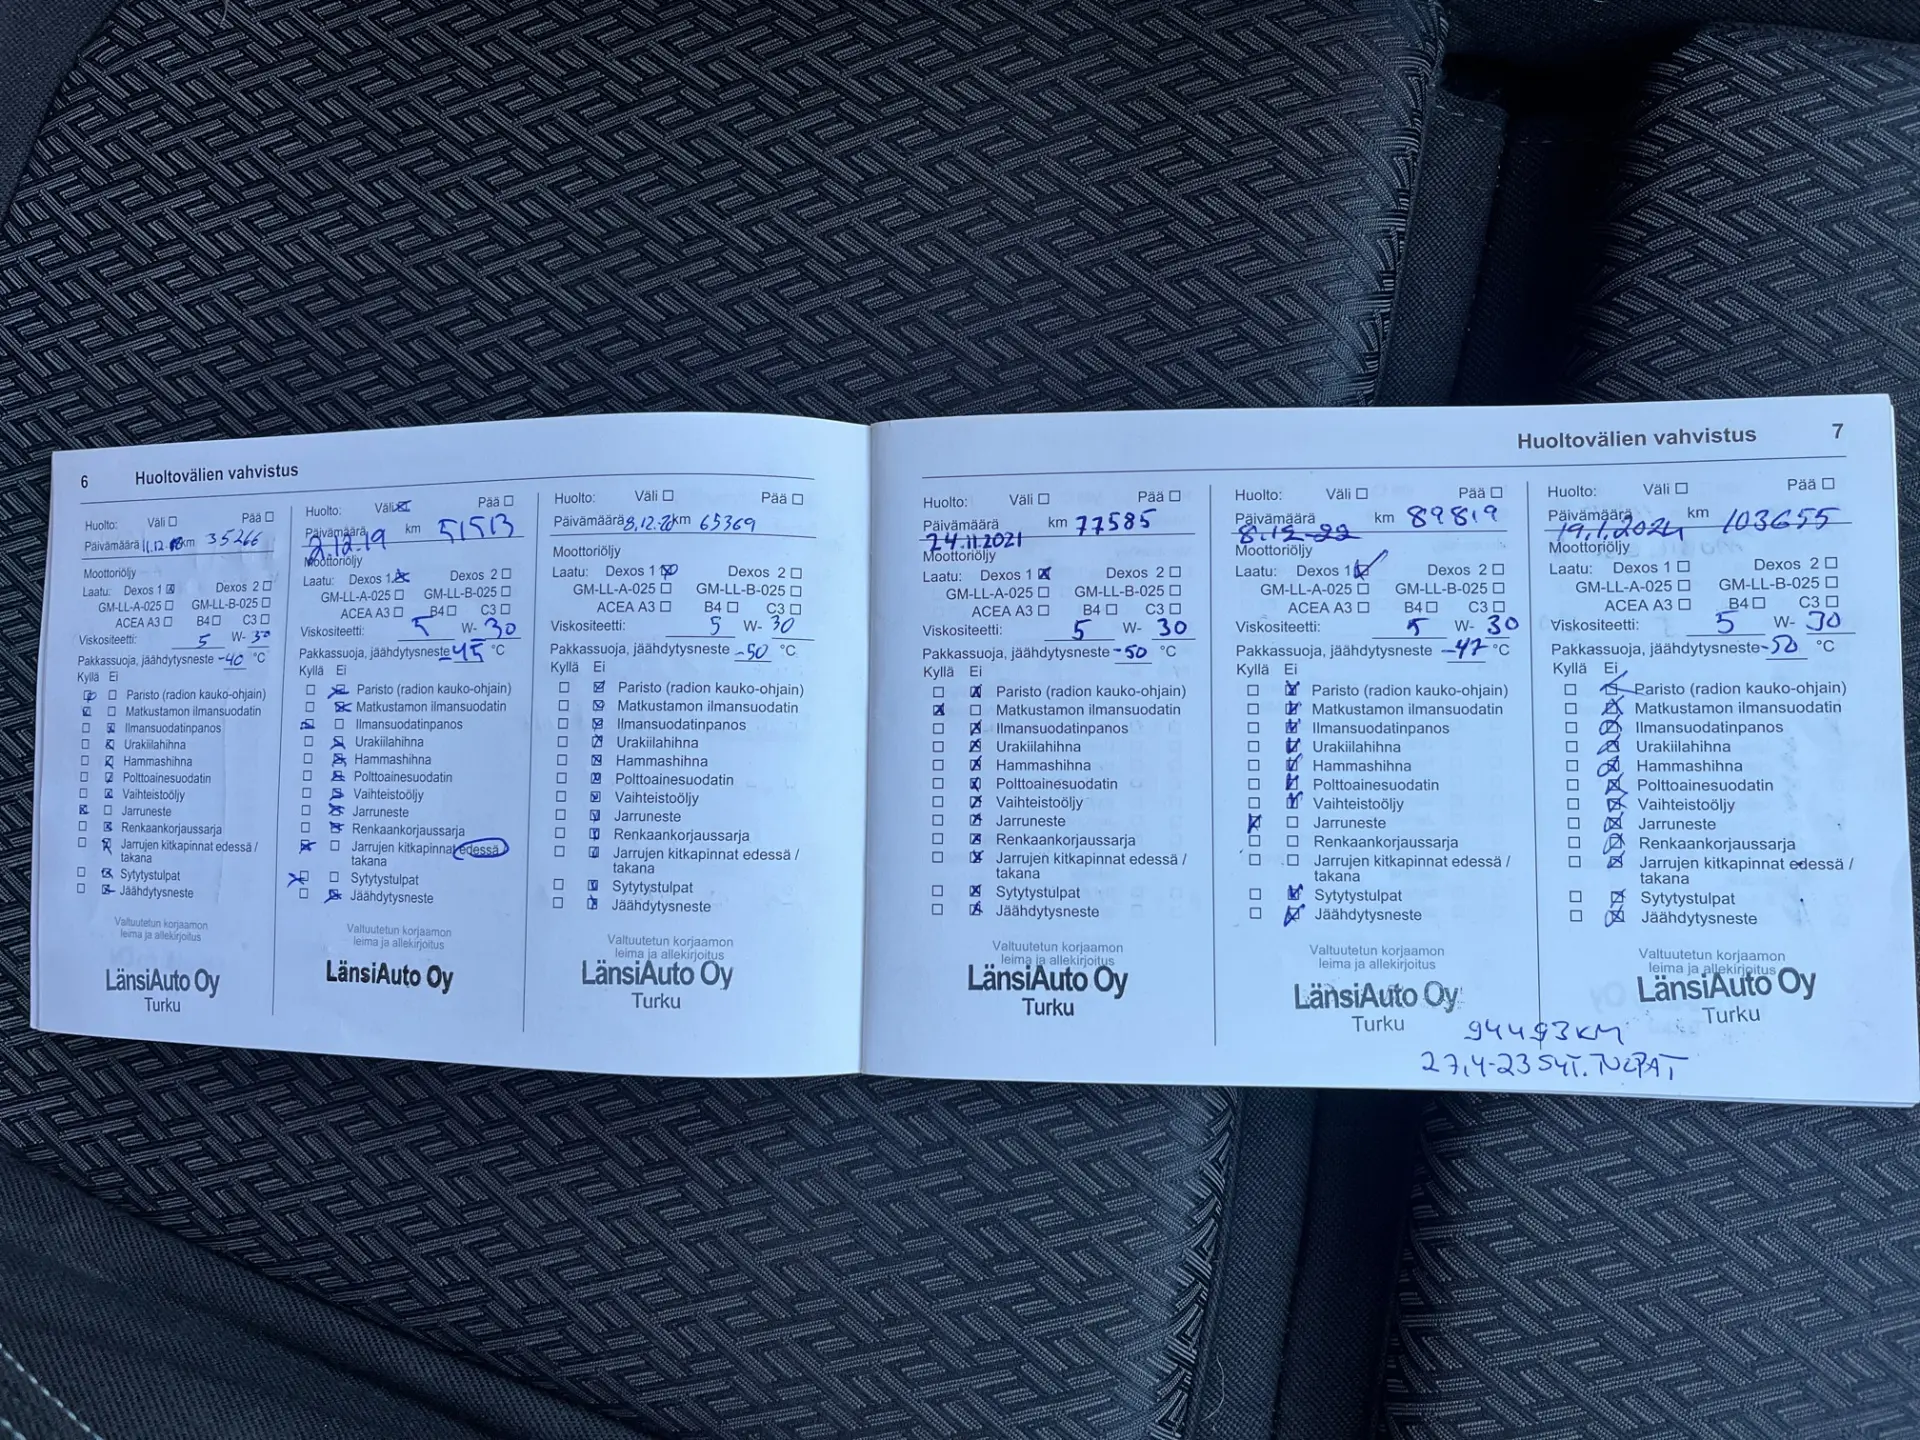 6 Huoltovälien vahvistus
Huolto: Väli ☐ Pää ☐
Päivämäärä 11.12.18 km 35266
Moottoriöljy
Laatu: Dexos 1 ☒ Dexos 2 ☐
GM-LL-A-025 ☐ GM-LL-B-025 ☐
ACEA A3 ☐ B4 ☐ C3 ☐
Viskositeetti: 5 W- 30
Pakkassuoja, jäähdytysneste -40 °C
Kyllä Ei
☒ ☐ Paristo (radion kauko-ohjain)
☒ ☐ Matkustamon ilmansuodatin
☐ ☒ Ilmansuodatinpanos
☐ ☒ Urakiilahihna
☐ ☒ Hammashihna
☐ ☒ Polttoainesuodatin
☐ ☒ Vaihteistoöljy
☒ ☐ Jarruneste
☐ ☒ Renkaankorjaussarja
☐ ☒ Jarrujen kitkapinnat edessä /
takana
☐ ☒ Sytytystulpat
☐ ☒ Jäähdytysneste
Valtuutetun korjaamon
leima ja allekirjoitus
LänsiAuto Oy
Turku
Huolto: Väli ☒ Pää ☐
Päivämäärä 2.12.19 km 51513
Moottoriöljy
Laatu: Dexos 1 ☒ Dexos 2 ☐
GM-LL-A-025 ☐ GM-LL-B-025 ☐
ACEA A3 ☐ B4 ☐ C3 ☐
Viskositeetti: 5 W- 30
Pakkassuoja, jäähdytysneste -45 °C
Kyllä Ei
☐ ☒ Paristo (radion kauko-ohjain)
☐ ☒ Matkustamon ilmansuodatin
☒ ☐ Ilmansuodatinpanos
☐ ☒ Urakiilahihna
☐ ☒ Hammashihna
☐ ☒ Polttoainesuodatin
☐ ☒ Vaihteistoöljy
☐ ☒ Jarruneste
☐ ☒ Renkaankorjaussarja
☒ ☐ Jarrujen kitkapinnat edessä /
takana
☒ ☐ Sytytystulpat
☐ ☒ Jäähdytysneste
Valtuutetun korjaamon
leima ja allekirjoitus
LänsiAuto Oy
Huolto: Väli ☐ Pää ☐
Päivämäärä 8.12.20 km 65369
Moottoriöljy
Laatu: Dexos 1 ☒ Dexos 2 ☐
GM-LL-A-025 ☐ GM-LL-B-025 ☐
ACEA A3 ☐ B4 ☐ C3 ☐
Viskositeetti: 5 W- 30
Pakkassuoja, jäähdytysneste -50 °C
Kyllä Ei
☐ ☒ Paristo (radion kauko-ohjain)
☐ ☒ Matkustamon ilmansuodatin
☐ ☒ Ilmansuodatinpanos
☐ ☒ Urakiilahihna
☐ ☒ Hammashihna
☐ ☒ Polttoainesuodatin
☐ ☒ Vaihteistoöljy
☐ ☒ Jarruneste
☐ ☒ Renkaankorjaussarja
☐ ☒ Jarrujen kitkapinnat edessä /
takana
☐ ☒ Sytytystulpat
☐ ☒ Jäähdytysneste
Valtuutetun korjaamon
leima ja allekirjoitus
LänsiAuto Oy
Turku
Huoltovälien vahvistus 7
Huolto: Väli ☐ Pää ☐
Päivämäärä 24.11.2021 km 77585
Moottoriöljy
Laatu: Dexos 1 ☒ Dexos 2 ☐
GM-LL-A-025 ☐ GM-LL-B-025 ☐
ACEA A3 ☐ B4 ☐ C3 ☐
Viskositeetti: 5 W- 30
Pakkassuoja, jäähdytysneste -50 °C
Kyllä Ei
☐ ☒ Paristo (radion kauko-ohjain)
☒ ☐ Matkustamon ilmansuodatin
☐ ☒ Ilmansuodatinpanos
☐ ☒ Urakiilahihna
☐ ☒ Hammashihna
☐ ☒ Polttoainesuodatin
☐ ☒ Vaihteistoöljy
☐ ☒ Jarruneste
☐ ☒ Renkaankorjaussarja
☐ ☒ Jarrujen kitkapinnat edessä /
takana
☐ ☒ Sytytystulpat
☐ ☒ Jäähdytysneste
Valtuutetun korjaamon
leima ja allekirjoitus
LänsiAuto Oy
Turku
Huolto: Väli ☐ Pää ☐
Päivämäärä 8.12-22 km 89819
Moottoriöljy
Laatu: Dexos 1 ☒ Dexos 2 ☐
GM-LL-A-025 ☐ GM-LL-B-025 ☐
ACEA A3 ☐ B4 ☐ C3 ☐
Viskositeetti: 5 W- 30
Pakkassuoja, jäähdytysneste -47 °C
Kyllä Ei
☐ ☒ Paristo (radion kauko-ohjain)
☐ ☒ Matkustamon ilmansuodatin
☐ ☒ Ilmansuodatinpanos
☐ ☒ Urakiilahihna
☐ ☒ Hammashihna
☐ ☒ Polttoainesuodatin
☐ ☒ Vaihteistoöljy
☒ ☐ Jarruneste
☐ ☐ Renkaankorjaussarja
☐ ☐ Jarrujen kitkapinnat edessä /
takana
☐ ☒ Sytytystulpat
☐ ☒ Jäähdytysneste
Valtuutetun korjaamon
leima ja allekirjoitus
LänsiAuto Oy
Turku
Huolto: Väli ☐ Pää ☐
Päivämäärä 19.1.2024 km 103655
Moottoriöljy
Laatu: Dexos 1 ☐ Dexos 2 ☐
GM-LL-A-025 ☐ GM-LL-B-025 ☐
ACEA A3 ☐ B4 ☐ C3 ☐
Viskositeetti: 5 W- 30
Pakkassuoja, jäähdytysneste -50 °C
Kyllä Ei
☐ ☒ Paristo (radion kauko-ohjain)
☐ ☒ Matkustamon ilmansuodatin
☐ ☒ Ilmansuodatinpanos
☐ ☒ Urakiilahihna
☐ ☒ Hammashihna
☐ ☒ Polttoainesuodatin
☐ ☒ Vaihteistoöljy
☐ ☒ Jarruneste
☐ ☒ Renkaankorjaussarja
☐ ☒ Jarrujen kitkapinnat edessä /
takana
☐ ☒ Sytytystulpat
☐ ☒ Jäähdytysneste
Valtuutetun korjaamon
leima ja allekirjoitus
LänsiAuto Oy
Turku
94493 KM
27,4-23 SYT. TULPAT